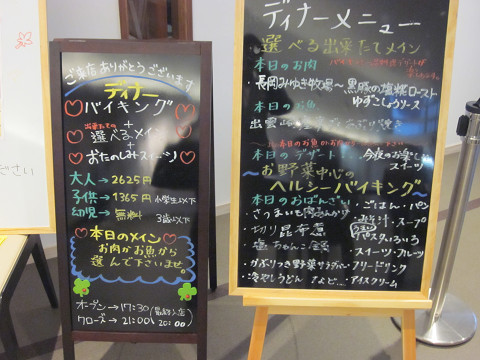 ご来店ありがとうございます
ディナー
バイキング
+
出来たての
選べるメイン
+
おたのしみスイーツ
大人→2625円
子供→1365円 小学生以下
幼児→無料 3歳以下
本日のメイン
お肉かお魚から
選んで下さいませ。
オープン→17:30
クローズ→21:00 (20:00)
ださい
ディナーメニュー
選べる出来たてメイン
本日のお肉
長岡みゆき牧場〜黒豚の塩糀ロースト
ゆずこしょうソース
本日のお魚
出雲崎
本日のデザート… 今夜のお楽しみ
スイーツ
お野菜中心の
ヘルシーバイキング
本日のおばんざい
・ごはん・パン
・さつまいも
・スープ
・切り昆布煮
・パスタいろいろ
・塩ちゃんこ鍋
・スイーツ・フルーツ
・がぶりつき野菜サラダ
・フリードリンク
・冷やしうどん など…
・アイスクリーム